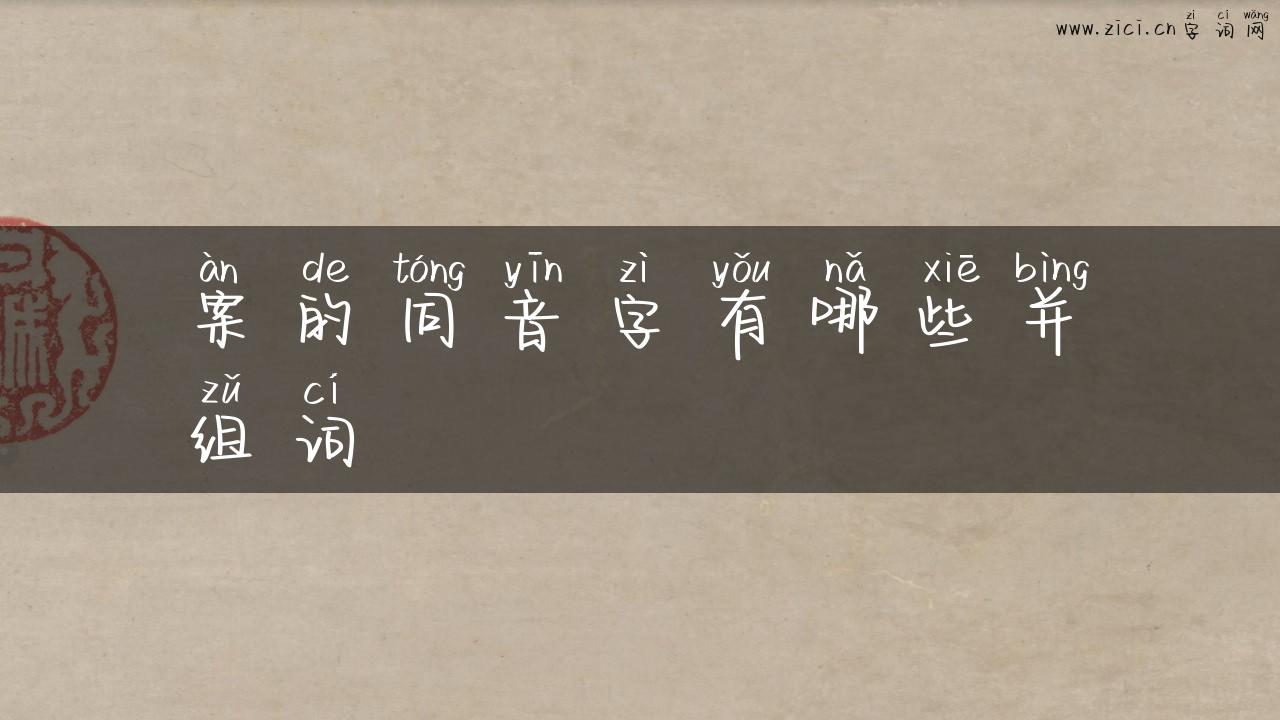 zì cí wǎng
www.zici.cn 字词网
àn de tóng yīn zì yǒu nǎ xiē bìng
案的同音字有哪些并
zǔ cí
组词